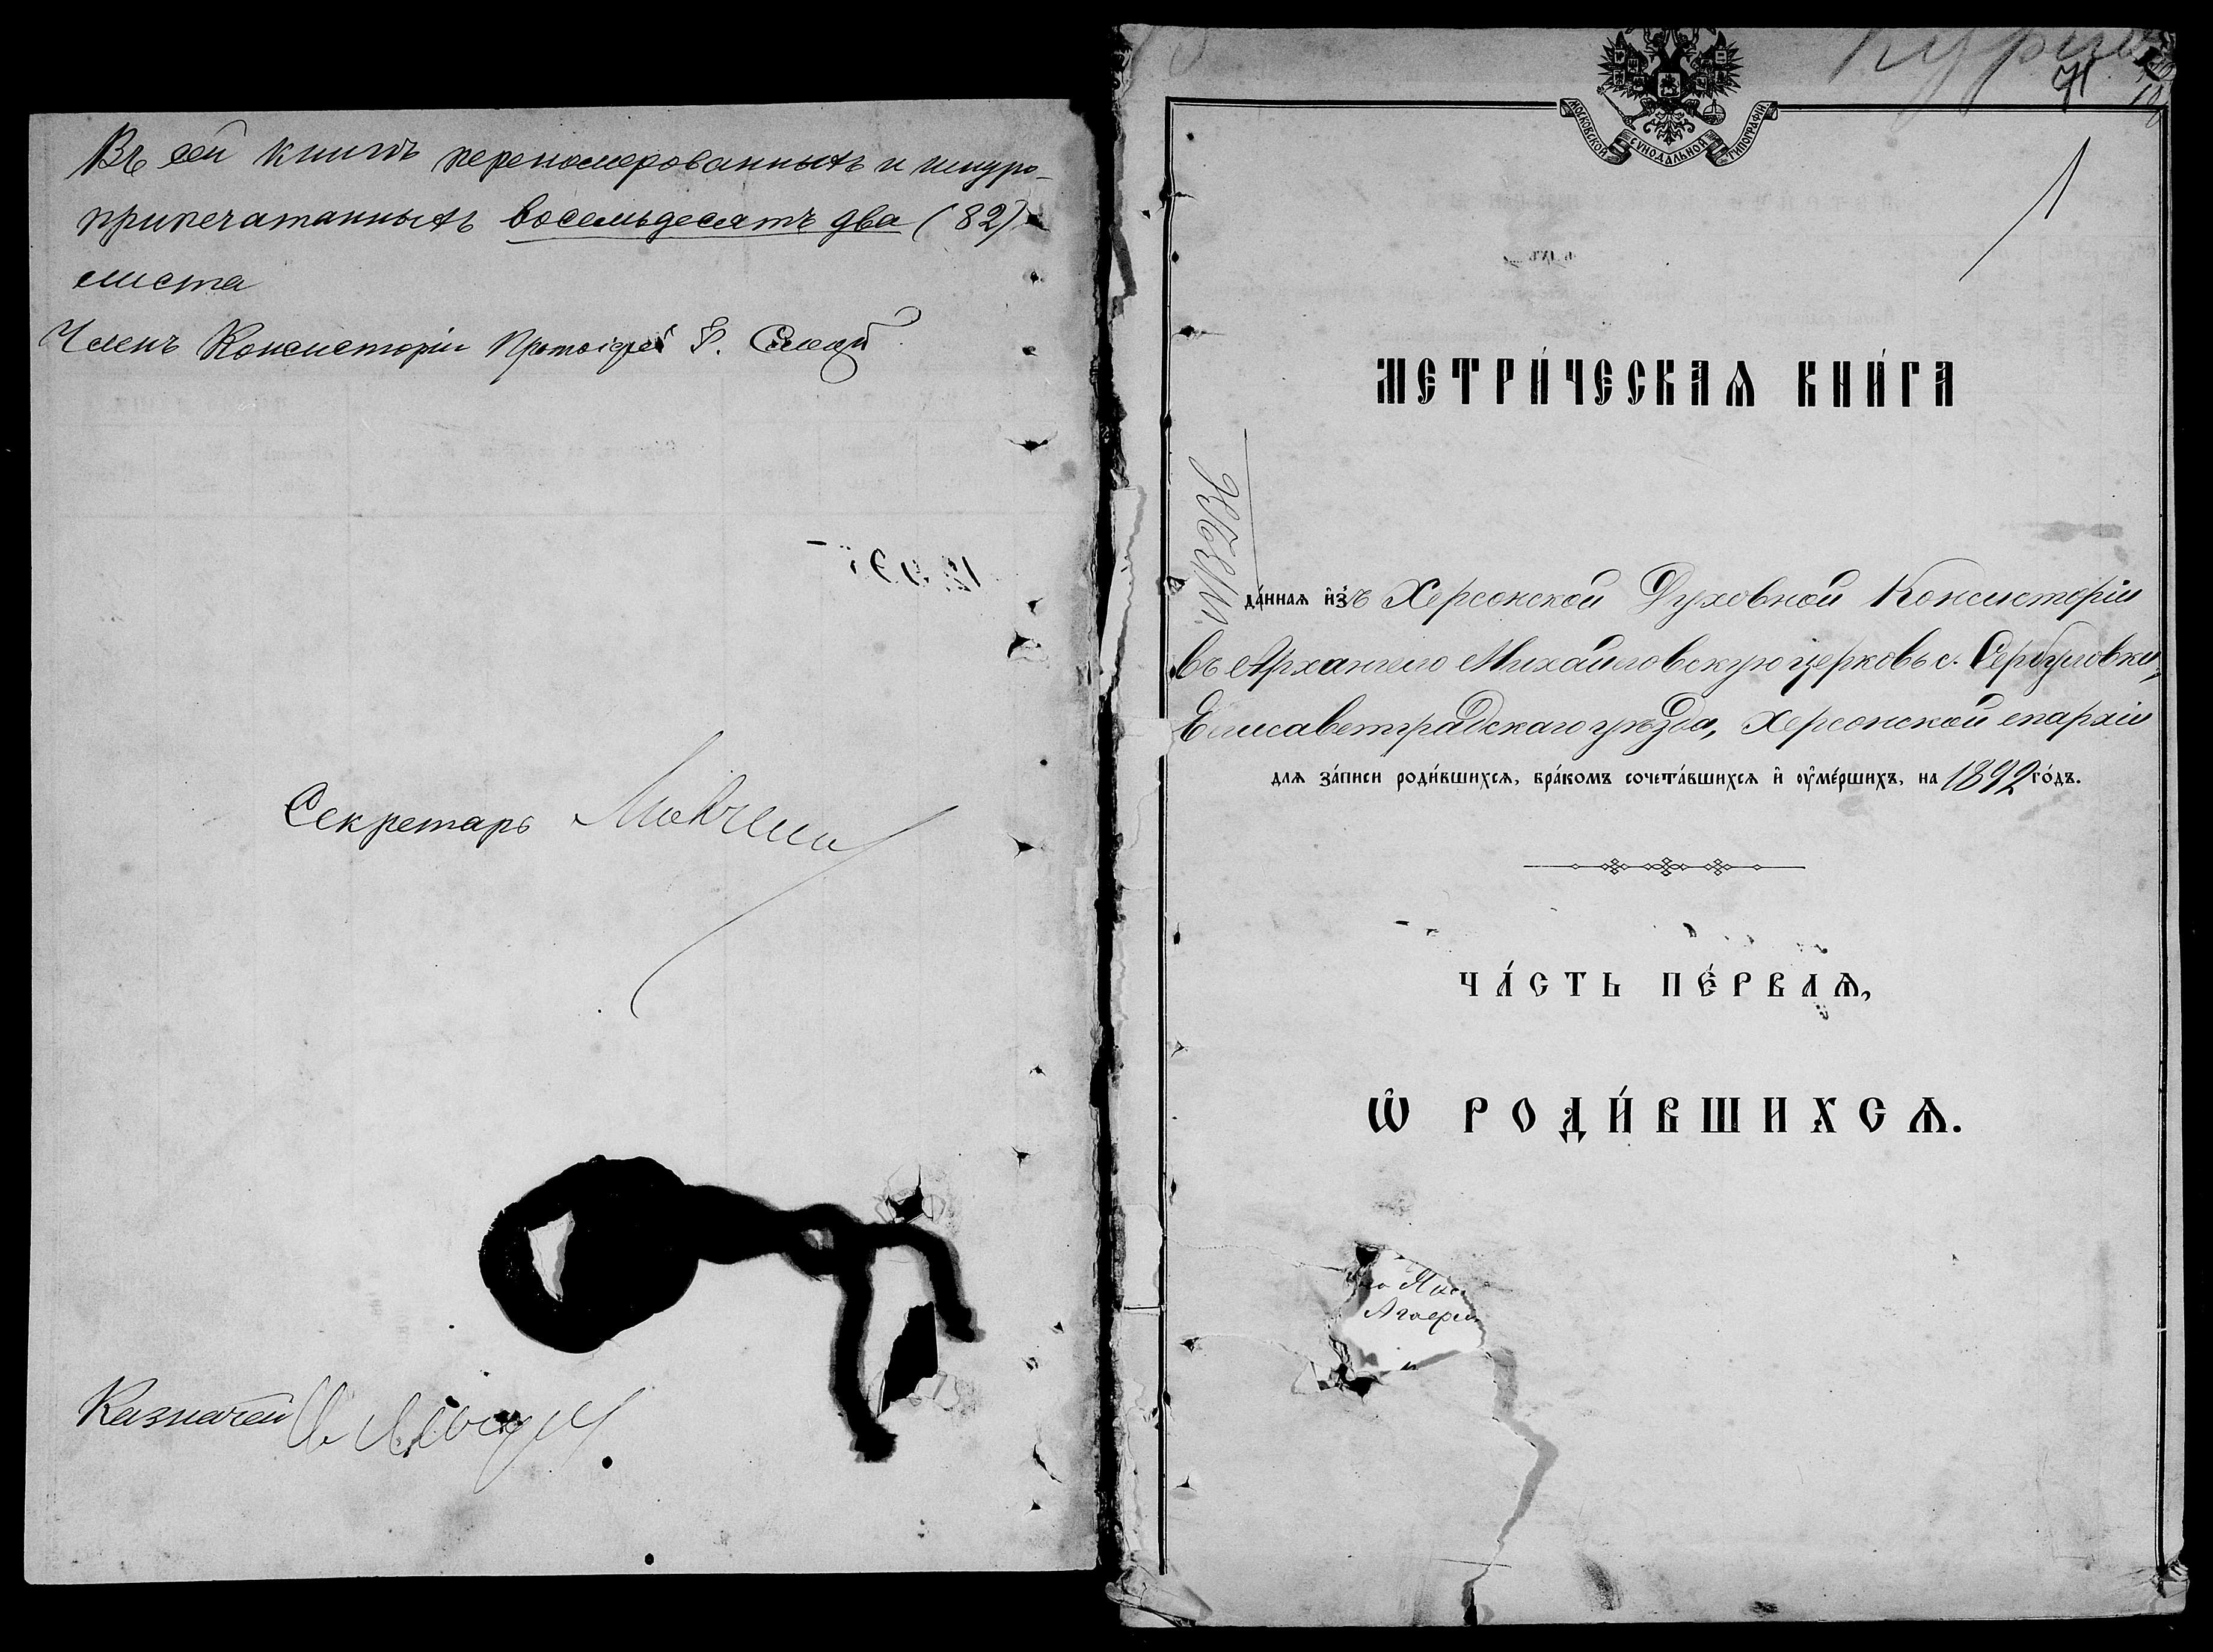 Въ сей книгѣ переномерованныхъ и шнуро-
припечатанныхъ восемьдесятъ два (82)
листа
Членъ Консисторіи Протоіерей
Секретарь
Казначей
МОСКОВСКОЙ СѴНОДАЛЬНОЙ ТИПОГРАФІИ
71
1
МЕТРИ́ЧЕСКАѦ КНИ́ГА
да́ннаѧ и҆зъ Херсонской Духовной Консисторіи
въ Архангело Михайловскую церковь с. Сербуловки,
Елисаветградскаго уѣзда, Херсонской епархіи
длѧ за́писи роди́вшихсѧ, бра́комъ сочета́вшихсѧ и҆ ᲂу҆ме́ршихъ, на 1892 го́дъ.
ЧА́СТЬ ПЕ́РВАѦ,
Ѡ҆ РОДИ́ВШИХСѦ.